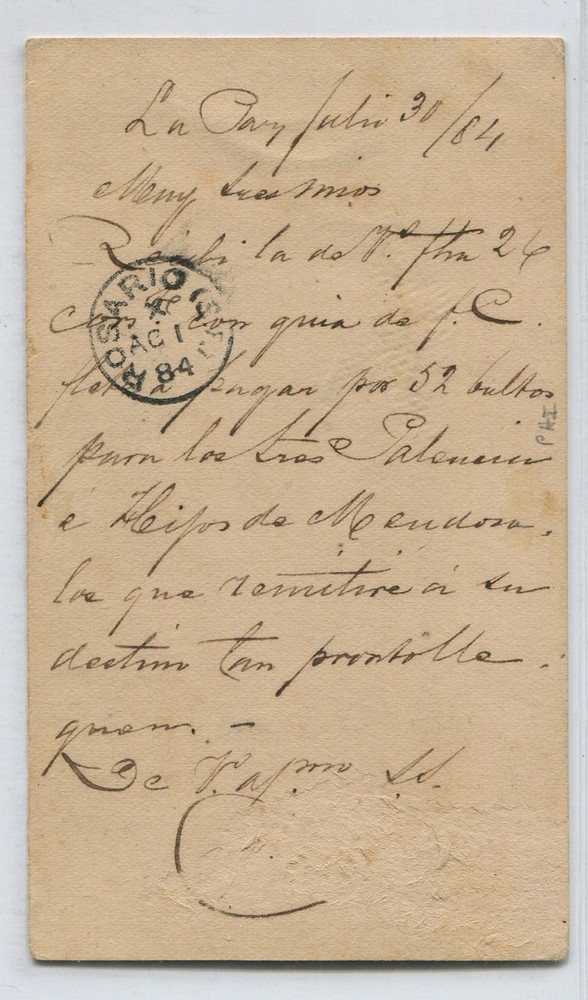 La Paz Julio 30/84
Muy Sres mios
Recibi la de Vs. fha 26
con guia de f. C.
flete a pagar por 52 bultos
para los Sres Palencia
é Hijos de Mendosa,
los que remitiré á su
destino tan pronto lle-
guen. —
De V. af.mo S.S.
ROSARIO (S.
AG 1
84